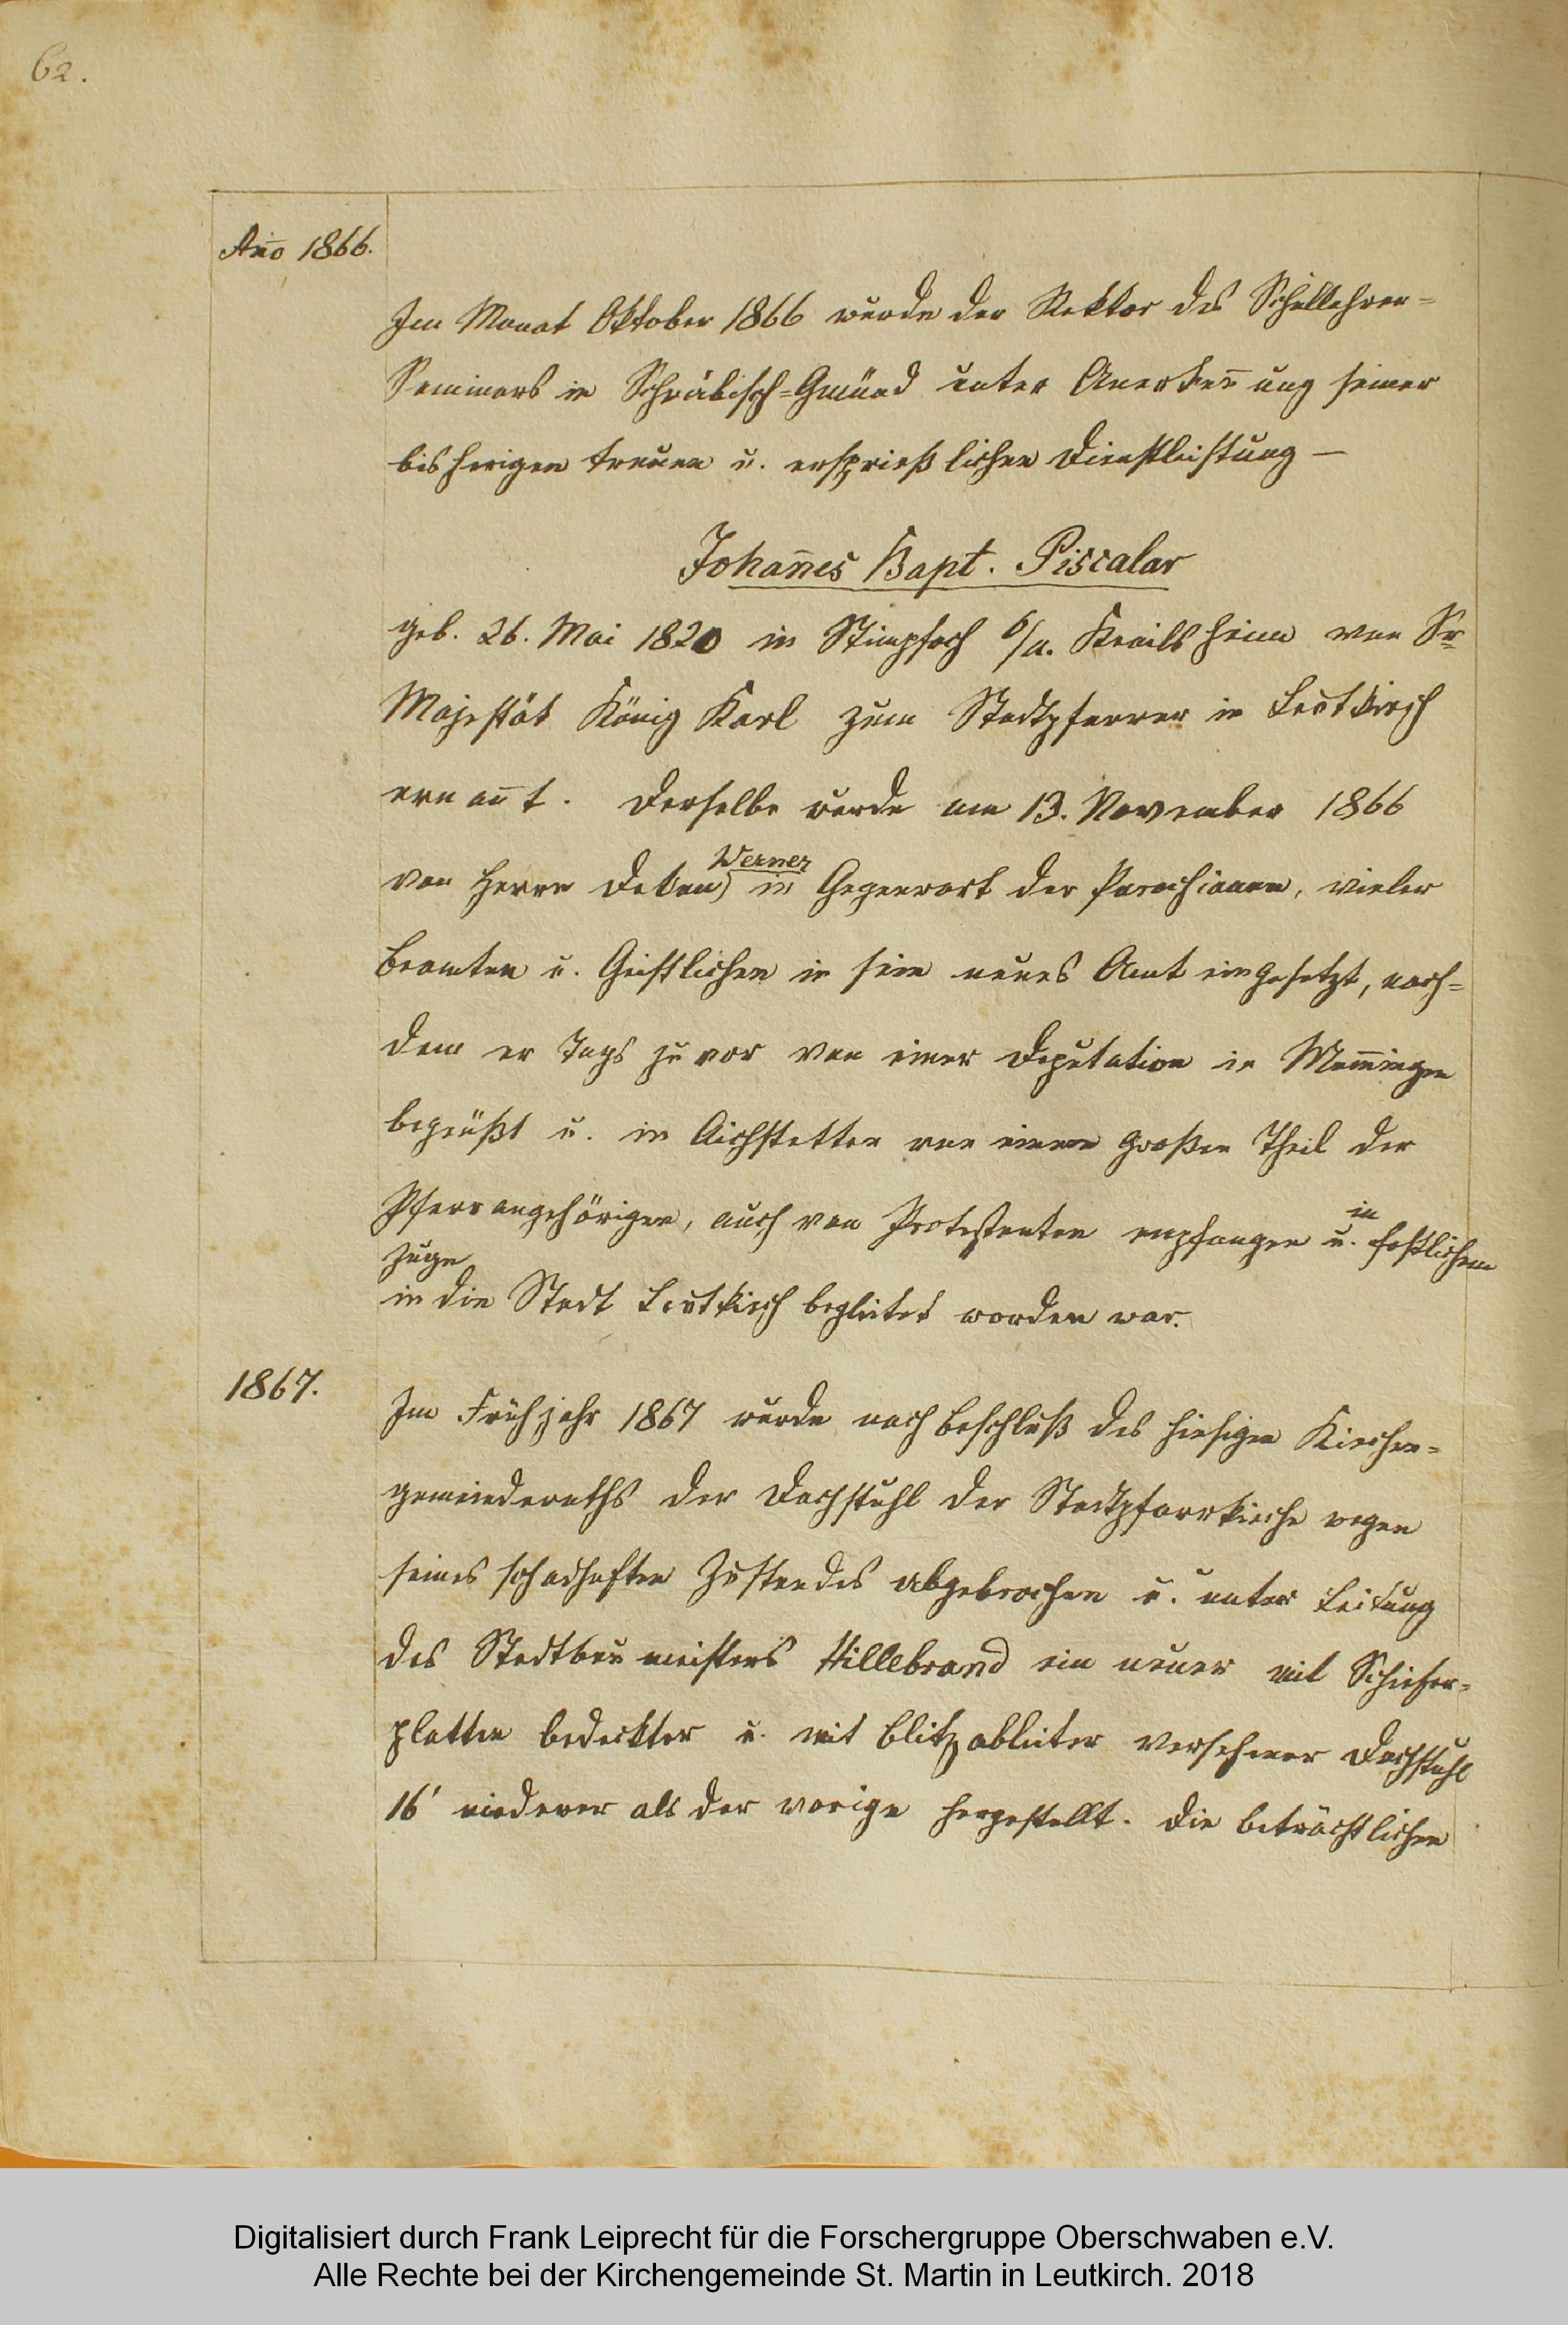 62.
Anno 1866.
Im Monat Oktober 1866 wurde der Rektor des Schullehrer=
Seminars in Schwäbisch=Gmünd unter Anerkeñung seiner
bisherigen treuen u. ersprießlichen Dienstleistung —
Johañes Bapt. Piscalar
geb. 26. Mai 1820 in Stimpfach O/A. Krailsheim von Sr
Majestät König Karl zum Stadtpfarrer in Leutkirch
ernañt. Derselbe wurde am 13. November 1866
Werner
von Herrn Dekan) in Gegenwart der Parochianen, vieler
Beamten u. Geistlichen in sein neues Amt eingesetzt, nach=
dem er Tags zuvor von einer Deputation in Mem̄ingen
begrüßt u. in Aichstetten von einem großen Theil der
Pfarrangehörigen, auch von Protestanten empfangen u. in festlichem
Zuge
in die Stadt Leutkirch begleitet worden war.
1867.
Im Frühjahr 1867 wurde nach Beschluß des hiesigen Kirchen=
gemeinderaths der Dachstuhl der Stadtpfarrkirche wegen
seines schadhaften Zustandes abgebrochen u. unter Leitung
des Stadtbaumeisters Hillebrand ein neuer mit Schiefer=
platten bedeckter u. mit Blitzableiter versehener Dachstuhl
16' niederer als der vorige hergestellt. Die beträchtlichen
Digitalisiert durch Frank Leiprecht für die Forschergruppe Oberschwaben e.V.
Alle Rechte bei der Kirchengemeinde St. Martin in Leutkirch. 2018